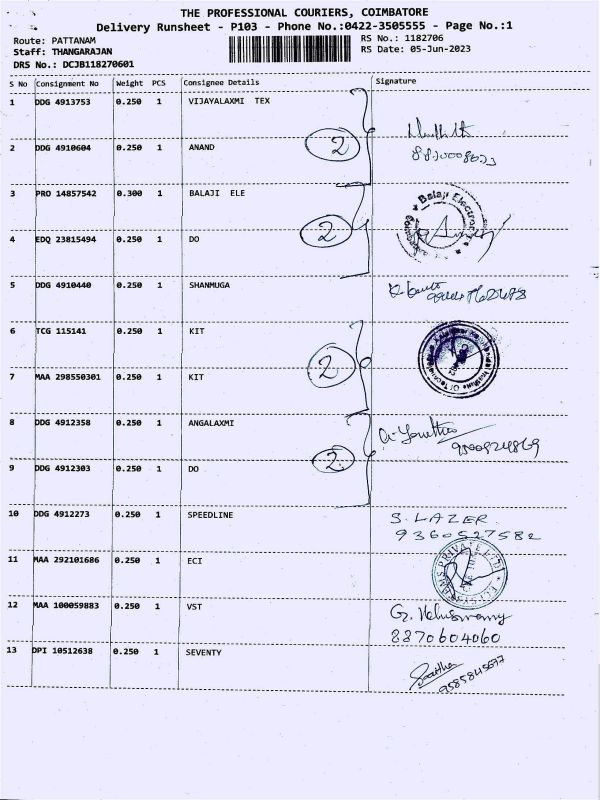 THE PROFESSIONAL COURIERS, COIMBATORE
Delivery Runsheet - P103 - Phone No.:0422-3505555 - Page No.:1
Route: PATTANAM RS No.: 1182706
Staff: THANGARAJAN RS Date: 05-Jun-2023
DRS No.: DCJB118270601
S No Consignment No Weight PCS Consignee Details Signature
1 DDG 4913753 0.250 1 VIJAYALAXMI TEX
2 DDG 4910604 0.250 1 ANAND
2
3 PRO 14857542 0.300 1 BALAJI ELE
Balaji Electron
4 EDQ 23815494 0.250 1 DO
2
5 DDG 4910440 0.250 1 SHANMUGA
6 TCG 115141 0.250 1 KIT
2
7 MAA 298550301 0.250 1 KIT
8 DDG 4912358 0.250 1 ANGALAXMI
9 DDG 4912303 0.250 1 DO
2
10 DDG 4912273 0.250 1 SPEEDLINE S. LAZER
9360527582
11 MAA 292101686 0.250 1 ECI
PRIVATE LTD
12 MAA 100059883 0.250 1 VST
8870604060
13 DPI 10512638 0.250 1 SEVENTY
9585845677